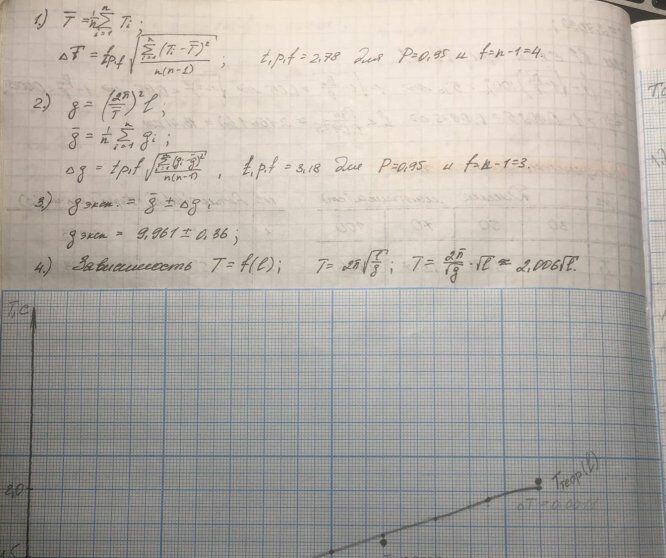 1.) T̄ = 1/n ∑ᵢ₌₁ⁿ Tᵢ ;
ΔT̄ = t p,f √(∑ᵢ₌₁ⁿ (Tᵢ - T̄)² / n(n-1)) ; t,p,f = 2,78 для P=0,95 и f=n-1=4.
2.) g = (2π/T̄)² l ;
ḡ = 1/n ∑ᵢ₌₁ⁿ gᵢ ;
Δg = t p,f √(∑ᵢ₌₁ⁿ (gᵢ - ḡ)² / n(n-1)) , t,p,f = 3,18 для P=0,95 и f=n-1=3.
3.) g эксп. = ḡ ± Δg ;
g эксп = 9,961 ± 0,36 ;
4.) Зависимость T = f(l) ; T = 2π √(l/g) ; T = 2π/√g · √l ≈ 2,006√l.
T,c
2,0
Tтеор(l)